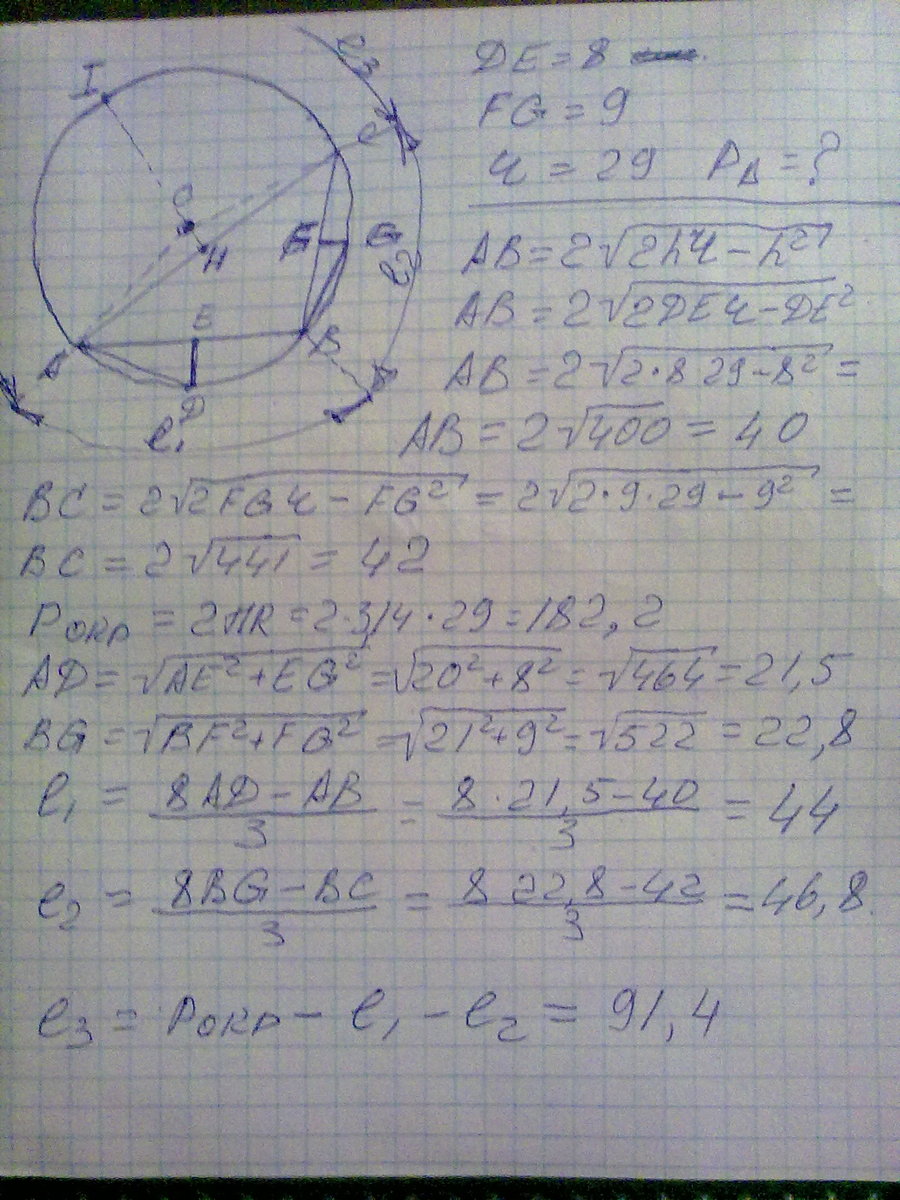 DE = 8
FG = 9
r = 29 P△ = ?
AB = 2√(2hr − h²)
AB = 2√(2DE r − DE²
AB = 2√(2·8 29 − 8²) =
AB = 2√400 = 40
BC = 2√(2FG r − FG²) = 2√(2·9·29 − 9²) =
BC = 2√441 = 42
Pокр = 2ПR = 2·3,14·29 = 182,2
AD = √(AE² + EG²) = √(20² + 8²) = √464 = 21,5
BG = √(BF² + FG²) = √(21² + 9²) = √522 = 22,8
l₁ = (8AD − AB)/3 = (8·21,5 − 40)/3 = 44
l₂ = (8BG − BC)/3 = (8 22,8 − 42)/3 = 46,8
l₃ = Pокр − l₁ − l₂ = 91,4
I
l₃
C
O
H
G
l₂
E
A
B
D
l₁